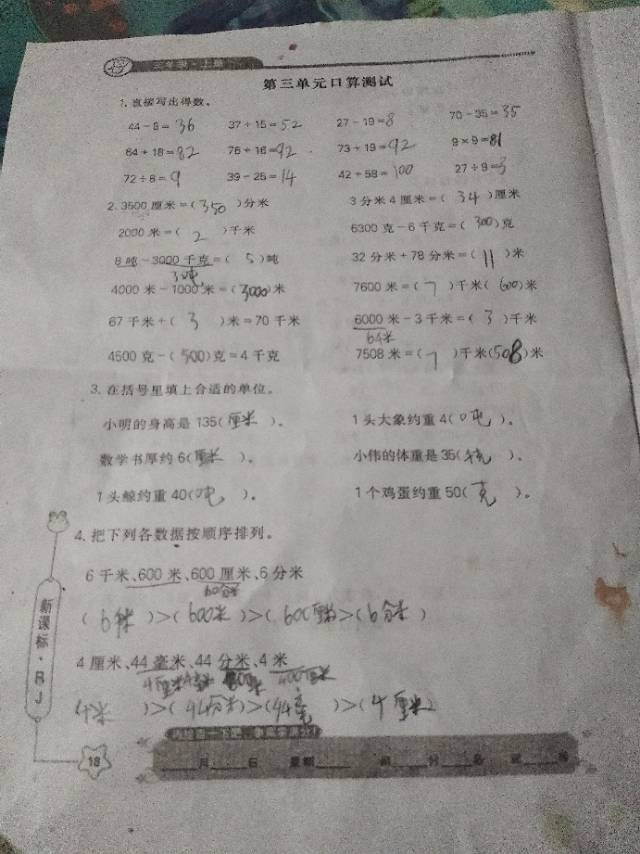 三年级·上册
第三单元口算测试
1. 直接写出得数。
44－8＝36 37＋15＝52 27－19＝8 70－35＝35
64＋18＝82 76＋16＝92 73＋19＝92 9×9＝81
72÷8＝9 39－25＝14 42＋58＝100 27÷9＝3
2. 3500厘米＝(350)分米 3分米4厘米＝(34)厘米
2000米＝(2)千米 6300克－6千克＝(300)克
8吨－3000千克＝(5)吨 32分米＋78分米＝(11)米
3吨
4000米－1000米＝(3000)米 7600米＝(7)千米(600)米
67千米＋(3)米＝70千米 6000米－3千米＝(3)千米
4500克－(500)克＝4千克 7508米＝(7)千米(508)米
3. 在括号里填上合适的单位。
小明的身高是135(厘米)。 1头大象约重4(吨)。
数学书厚约6(厘米)。 小伟的体重是35(千克)。
1头鲸约重40(吨)。 1个鸡蛋约重50(克)。
4. 把下列各数据按顺序排列。
6千米、600米、600厘米、6分米
60分米
(6千米)＞(600米)＞(600厘米)＞(6分米)
4厘米、44毫米、44分米、4米
4米)＞(44分米)＞(44毫)＞(4厘米)
新课标·RJ
18
月 日 星期 分